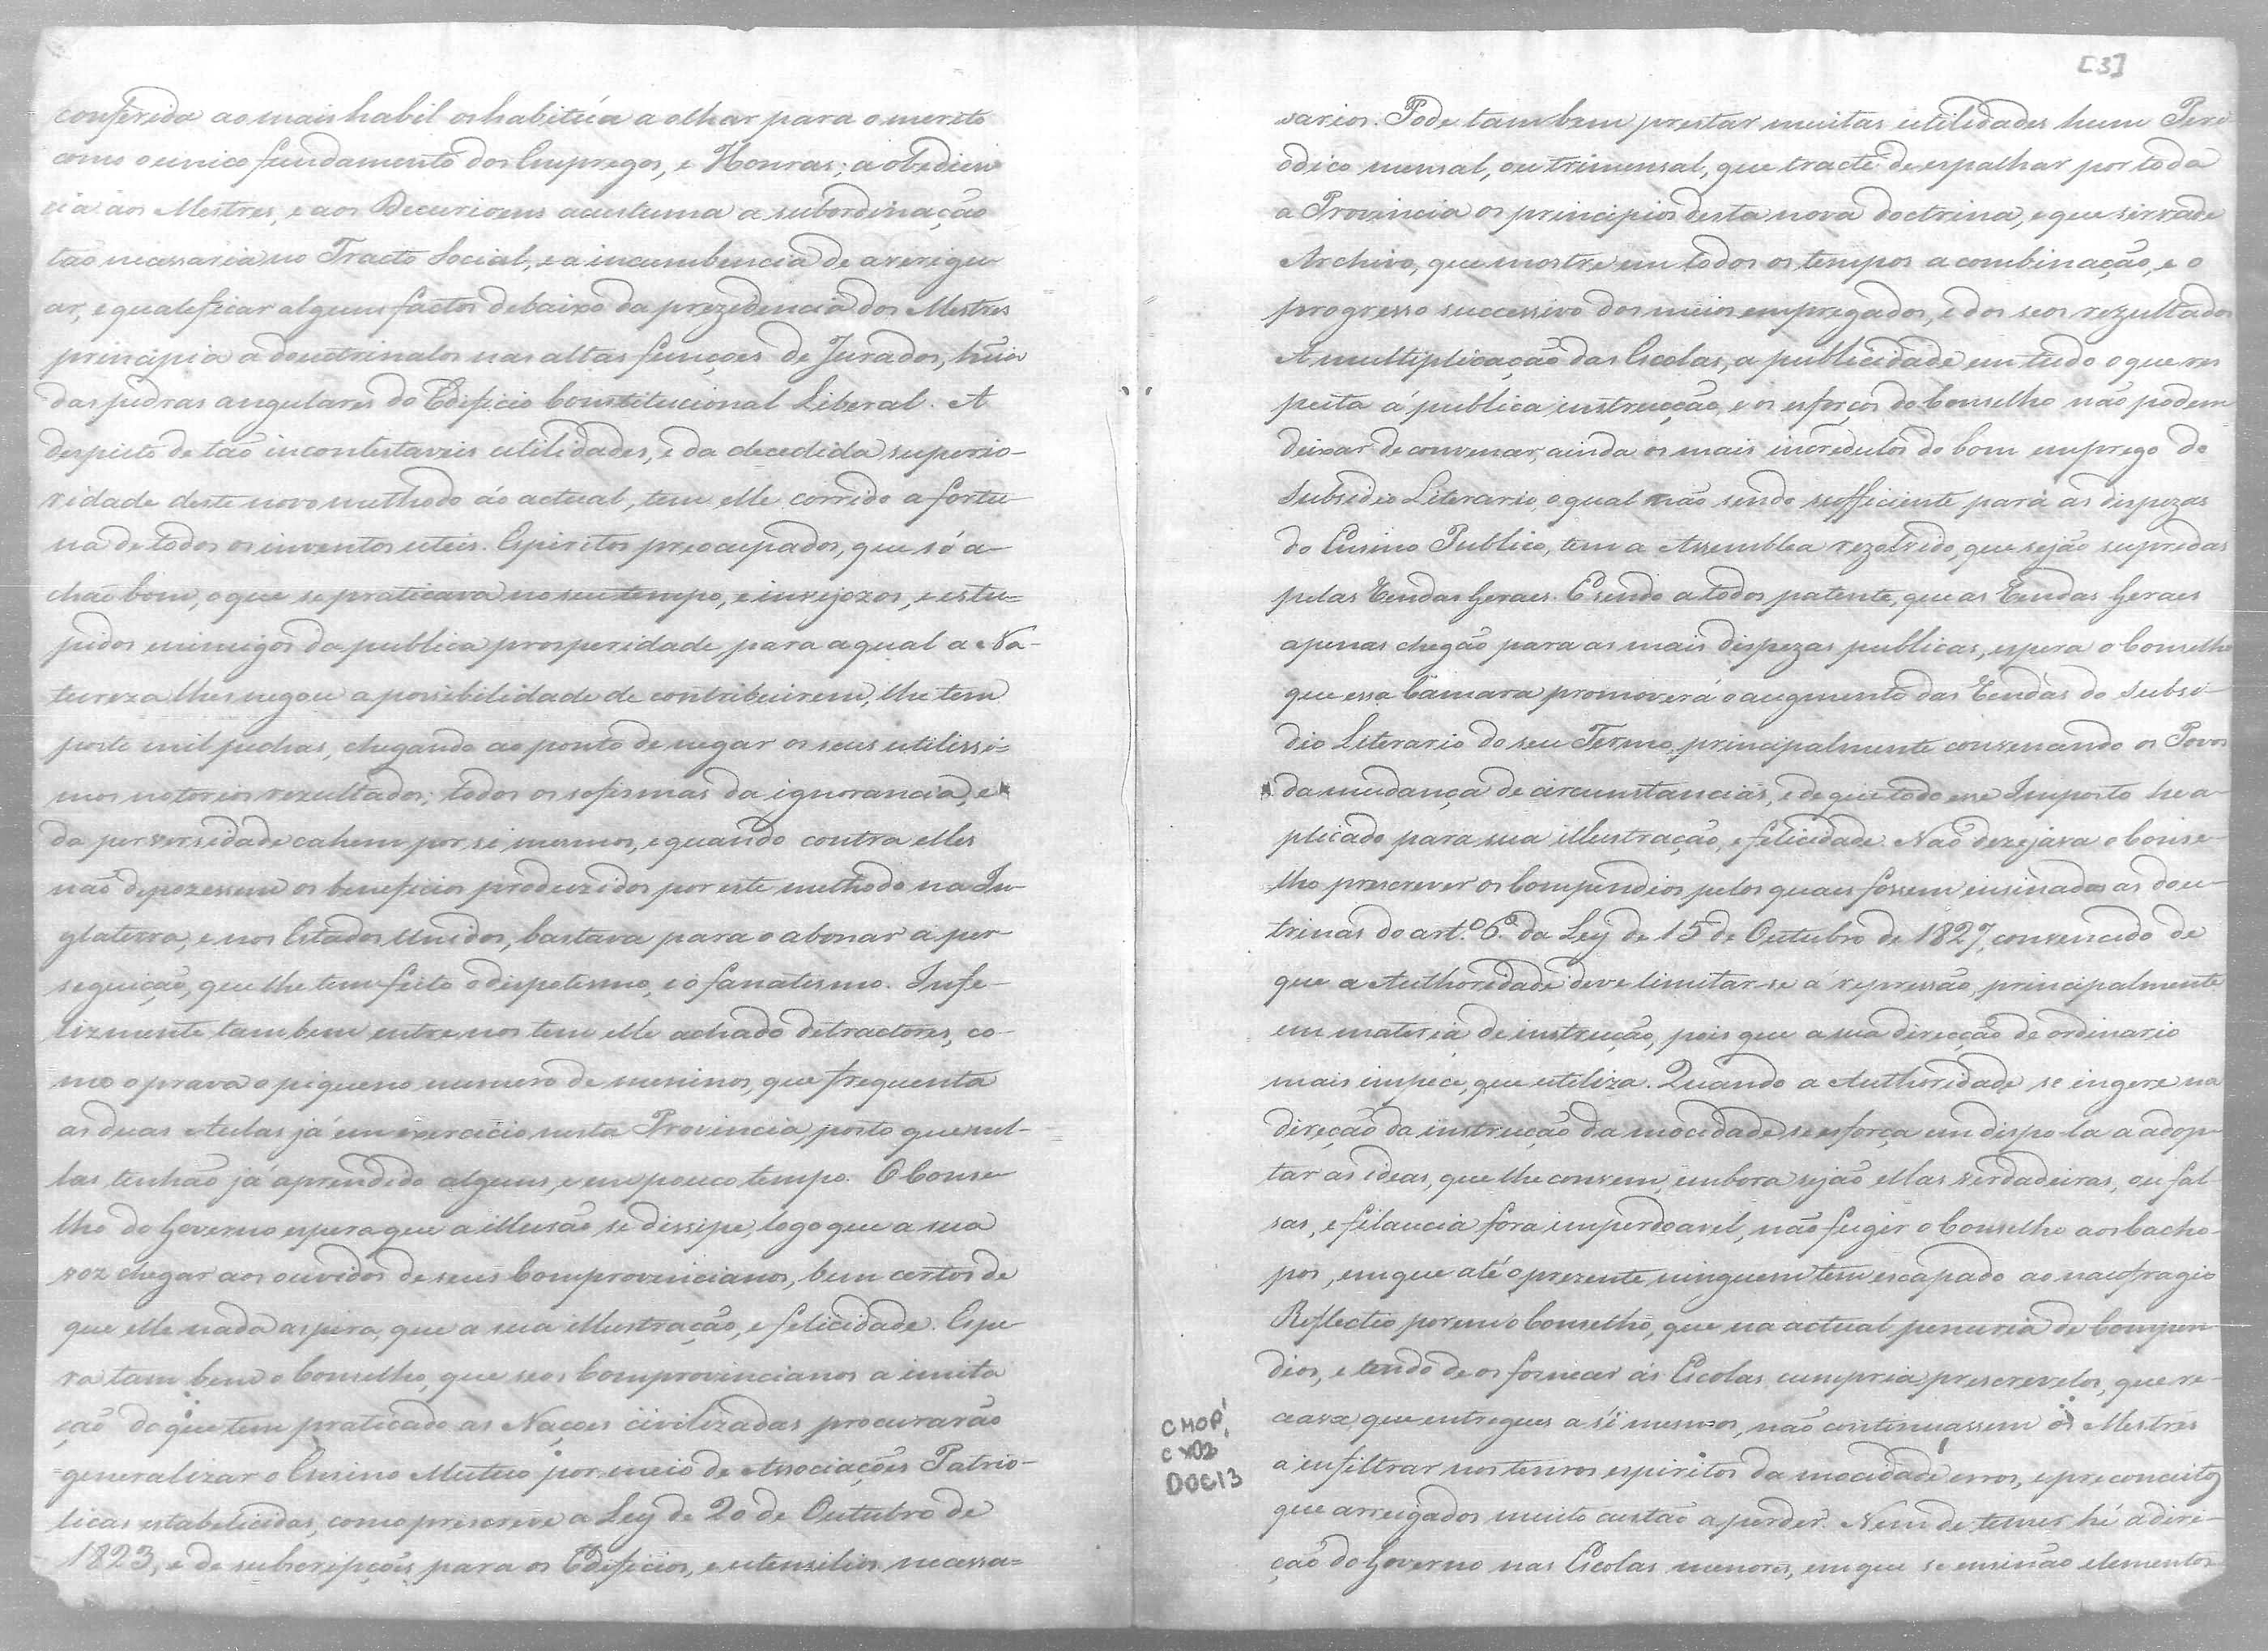 conferida ao mais habil os habitúa a olhar para o merito
como o unico fundamento dos Empregos, e Honras; a obedien
cia aos Mestres, e aos Decurioens acustuma a subordinação
tão necessaria no Tracto Social, e a incumbencia de averigu
ar, e qualeficar alguns factos debaixo da prezidencia dos Mestres
principia a douctrinalos nas altas funçoes de Jurados, huã
das pedras angulares do Edificio Constitucional Liberal. A
despeito de tão incontestaveis utilidades, e da decedida superio-
ridade deste novo methodo áo actual, tem elle corrido a fortu
na de todos os inventos uteis. Espiritos preocupados, que só a-
chão bom, o que se praticava no seu tempo, e invejozos, e estu=
pidos inimigos da publica prosperidade, para a qual a Na-
tureza lhes negou a possibilidade de contribuirem, lhe tem
posto mil pechas, chegando ao ponto de negar os seus utilissi=
mos notorios rezultados; todos os sofismas da ignorancia, e
da perversidade cahem por si mesmos, e quando contra elles
não depozessem os beneficios produzidos por este methodo na In-
glaterra, e nos Estados Unidos, bastava para o abonar a per
seguição, que lhe tem feito o dispotismo, e o fanatismo. Infe-
lizmente tambem entre nos tem elle achado detractores, co-
mo o prova o piqueno numero de meninos, que frequenta
as duas Aulas já em exercicio nesta Provincia, posto que nel-
las tenhão já aprendido alguns, e em pouco tempo. O Conse
lho do Governo espera que a illusão se dissipe, logo que a sua
voz chegar aos ouvidos de seus Comprovincianos, bem certos de
que elle nada aspira, que a sua illustração, e felicidade. Espe
ra tambem o Conselho, que seos Comprovincianos a imita
ção do que tem praticado as Naçoes civilizadas procurarão
generalizar o Ensino Mutuo por meio de Associações Patrio-
ticas estabelicidas, como prescreve a Ley de 20 de Outubro de
1823, e de subscripções para os Edificios, e utensilios necessa=
[3]
sarios. Pode tambem prestar muitas utilidades hum Peri
odico mensal, ou trimensal, que tracte de espalhar por toda
a Provincia os principios desta nova doctrina, e que sirva de
Archivo, que mostre em todos os tempos a combinação, e o
progresso successivo dos meios empregados, e dos seos rezultados
A multiplicação das Escolas, a publicidade em tudo o que res
peita á publica instrucção, e os esforços do Conselho não podem
deixar de convencer, ainda os mais incredulos do bom emprego do
Subsidio Literario, o qual não sendo sufficiente para as dispezas
do Ensino Publico, tem a Assemblea rezolvido, que sejão supredas
pelas Rendas Geraes. E sendo a todos patente, que as Rendas Geraes
apenas chegão para as mais dispezas publicas, espera o Conselho
que essa Camara promoverá o augmento das Rendas do Subsi-
dio Literario do seu Termo, principalmente convencendo os Povos
da mudança de circunstancias, e de que todo esse Imposto he a-
plicado para sua illustração, e felicidade. Não dezejava o Conse-
lho prescrever os Compendios pelos quais fossem ensinados as dou-
trinas do art.º 6.º da Ley de 15 de Outubro de 1827, convencido de
que a Authoridade deve limitar-se á repressão, principalmente
em materia de instrucção, pois que a sua direcção de ordinario
mais impece, que utiliza. Quando a Authoridade se ingere na
direção da instrucção da mocidade se esforça em dispo-la a adop-
tar as ideas, que lhe convem, embora sejão ellas verdadeiras, ou fal-
sas, e filaucia fora imperdoavel, não fugir o Conselho aos cacho-
pos, em que até o prezente ninguem tem escapado ao naufragio
Reflectio porem o Conselho, que na actual penuria de Compen
dios, e tendo de os fornecer ás Escolas cumpria prescrevelos, que re-
ceava que entregues a si mesmos, não continuassem os Mestres
a infiltrar nos tenros espiritos da mocidade erros, e preconceitos
que arreigados muito custão a perder. Nem de temer hé a dire-
ção do Governo nas Escolas menores, em que se ensinão elementos
CMOP
CX02
DOC13